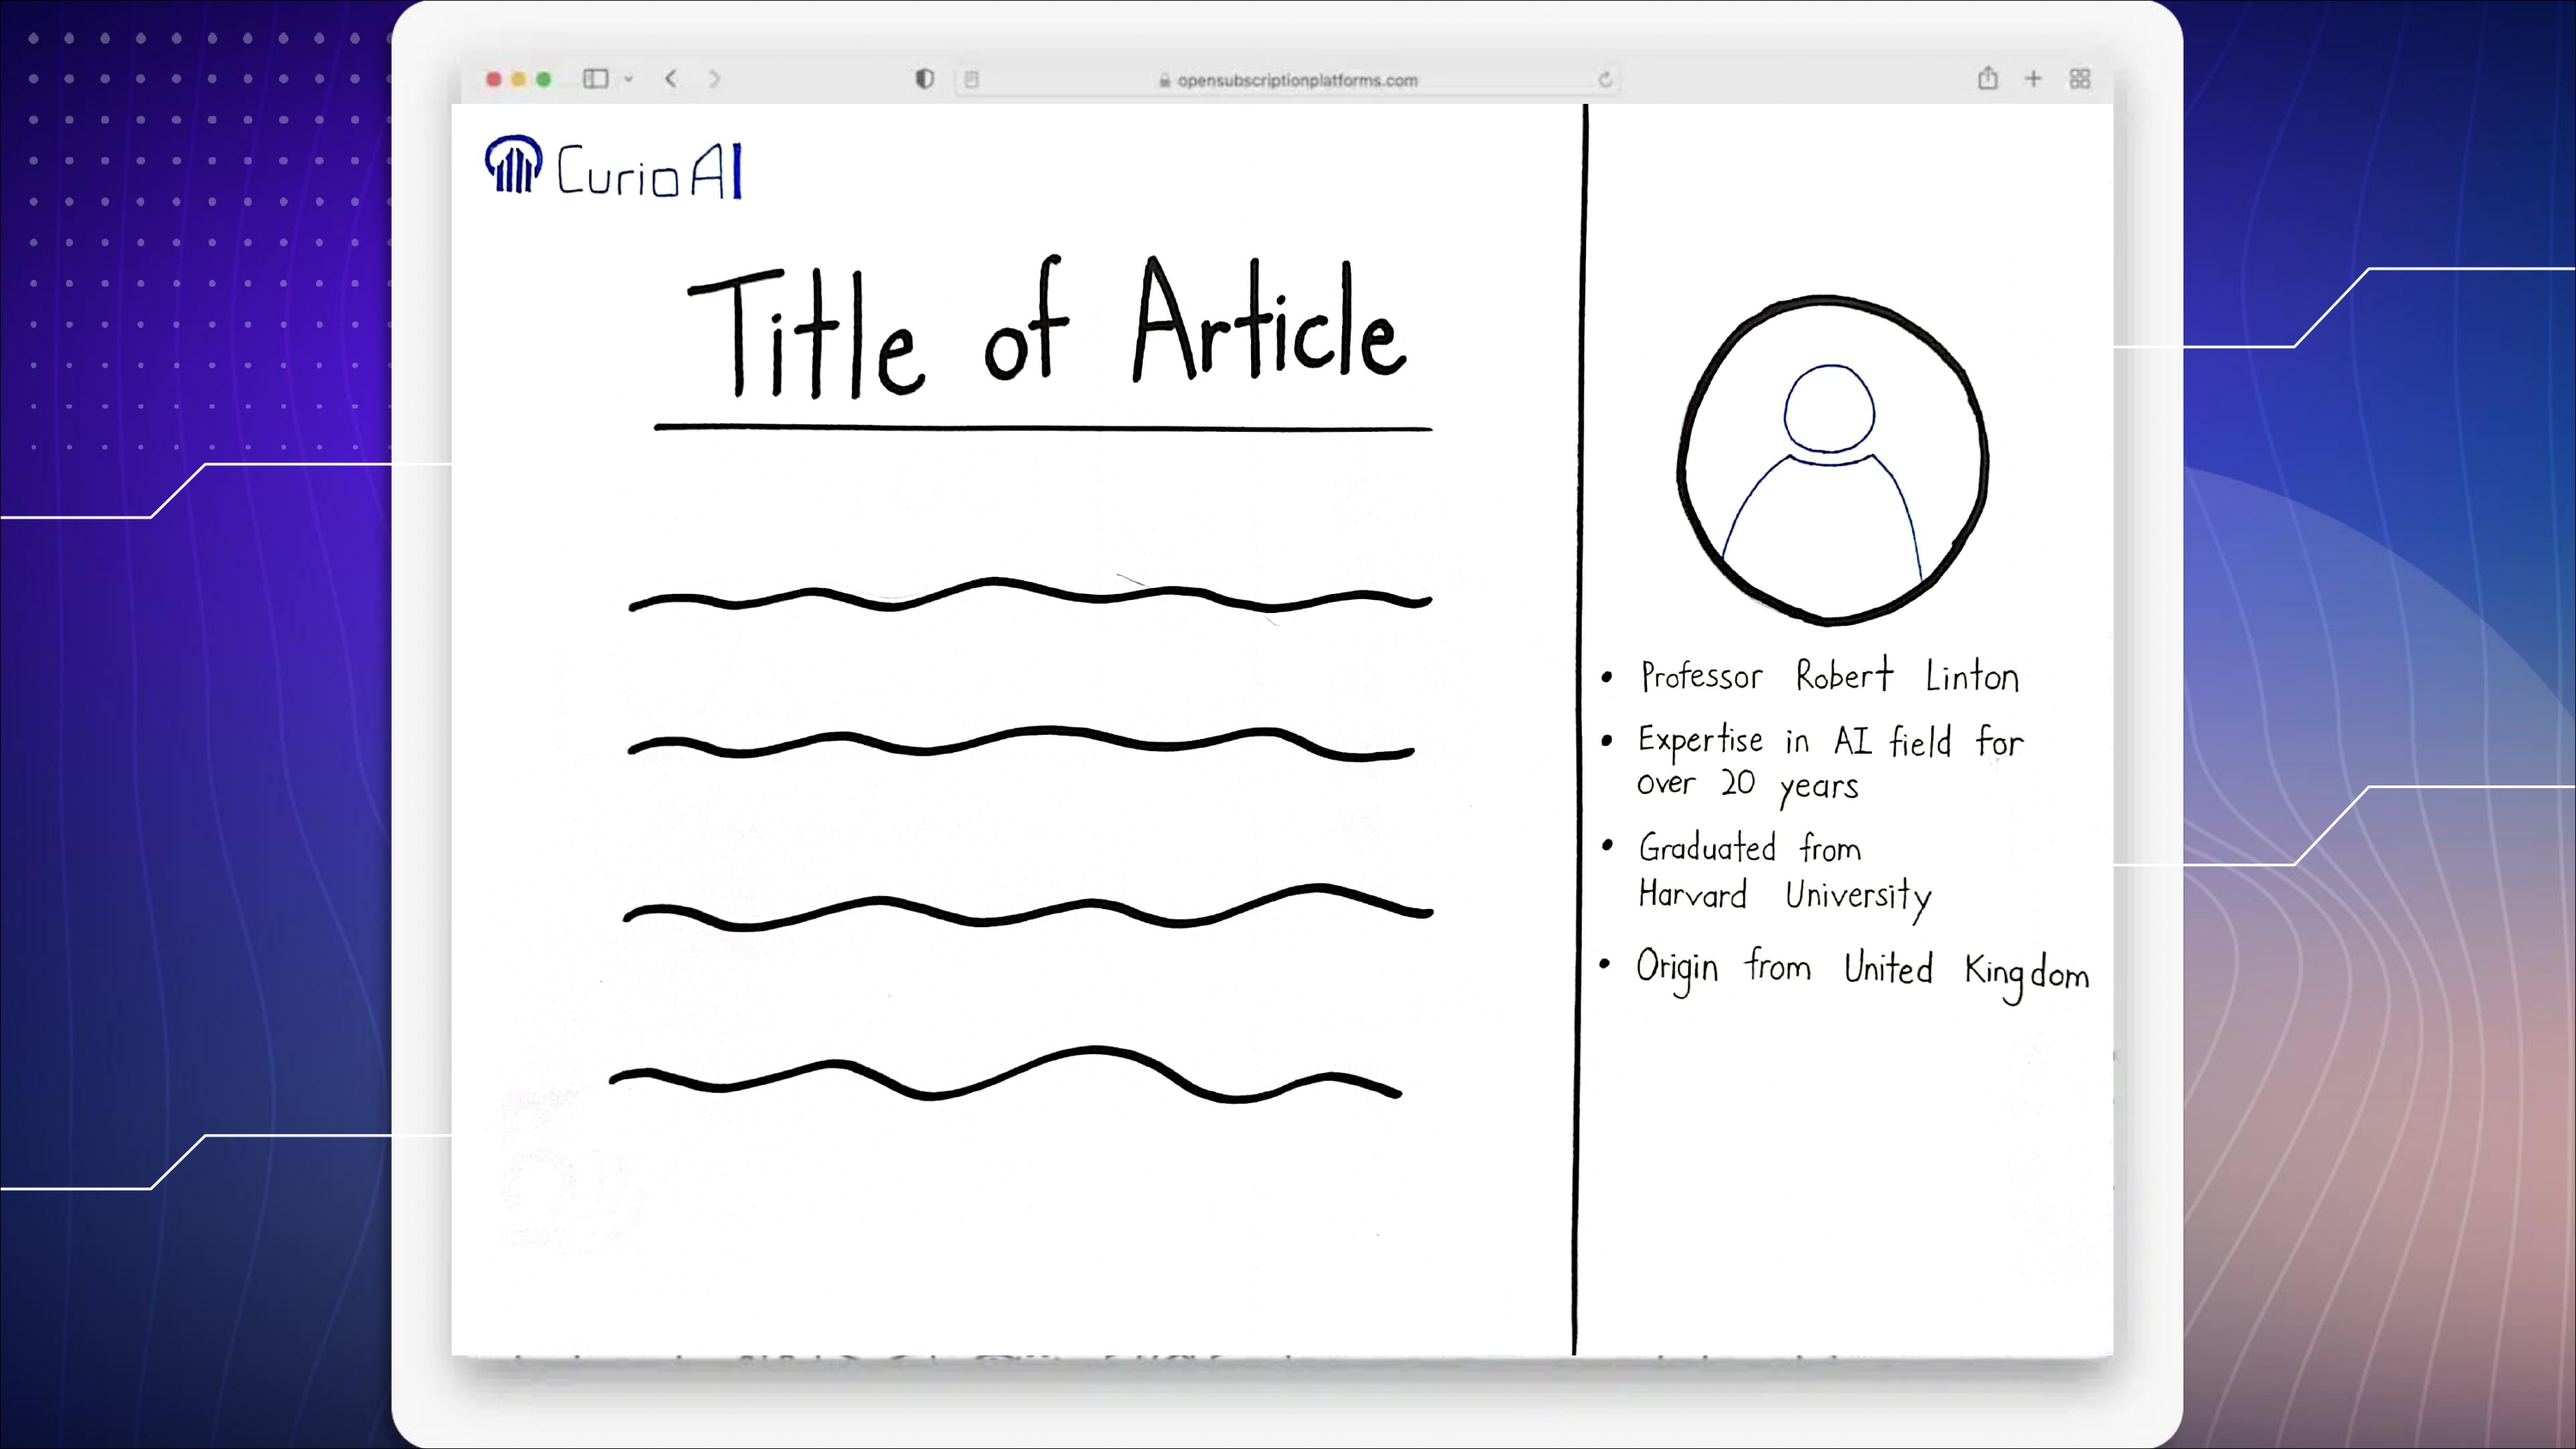 opensubscriptionplatforms.com
CurioAI
Title of Article
• Professor Robert Linton
• Expertise in AI field for
over 20 years
• Graduated from
Harvard University
• Origin from United Kingdom